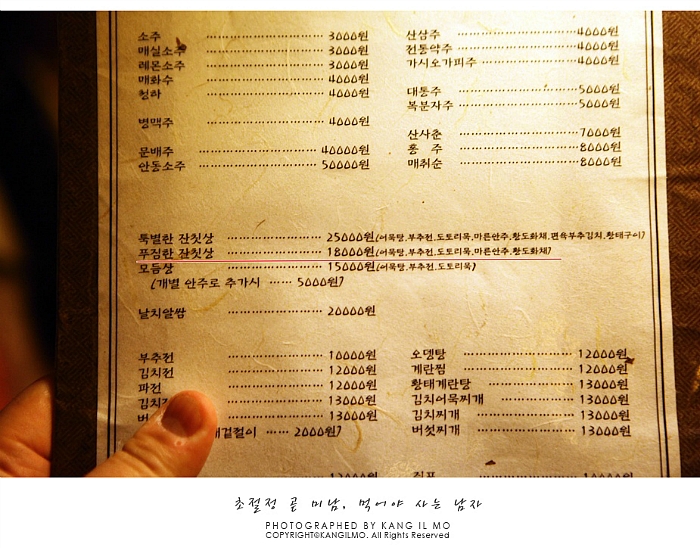 소주 ---------- 3000원
매실소주 ---------- 3000원
레몬소주 ---------- 3000원
매화수 ---------- 4000원
청하 ---------- 4000원
병맥주 ---------- 4000원
문배주 ---------- 40000원
안동소주 ---------- 50000원
산삼주 ---------- 4000원
전통약주 ---------- 4000원
가시오가피주 ---------- 4000원
대통주 ---------- 5000원
복분자주 ---------- 5000원
산사춘 ---------- 7000원
홍 주 ---------- 8000원
매취순 ---------- 8000원
특별한 잔칫상 ---------- 25000원(어묵탕,부추전,도토리묵,마른안주,황도화채,편육부추김치,황태구이)
푸짐한 잔칫상 ---------- 18000원(어묵탕,부추전,도토리묵,마른안주,황도화채)
모듬상 ---------- 15000원(어묵탕,부추전,도토리묵)
(개별 안주로 추가시 ------ 5000원)
날치알쌈 ---------- 20000원
부추전 ---------- 10000원
김치전 ---------- 12000원
파전 ---------- 12000원
김치 ---------- 13000원
버 ---------- 13000원
겉절이 ------ 2000원)
오뎅탕 ---------- 12000원
계란찜 ---------- 12000원
황태계란탕 ---------- 13000원
김치어묵찌개 ---------- 13000원
김치찌개 ---------- 13000원
버섯찌개 ---------- 13000원
초절정 꽃 미남, 먹어야 사는 남자
PHOTOGRAPHED BY KANG IL MO
COPYRIGHT©KANGILMO. All Rights Reserved